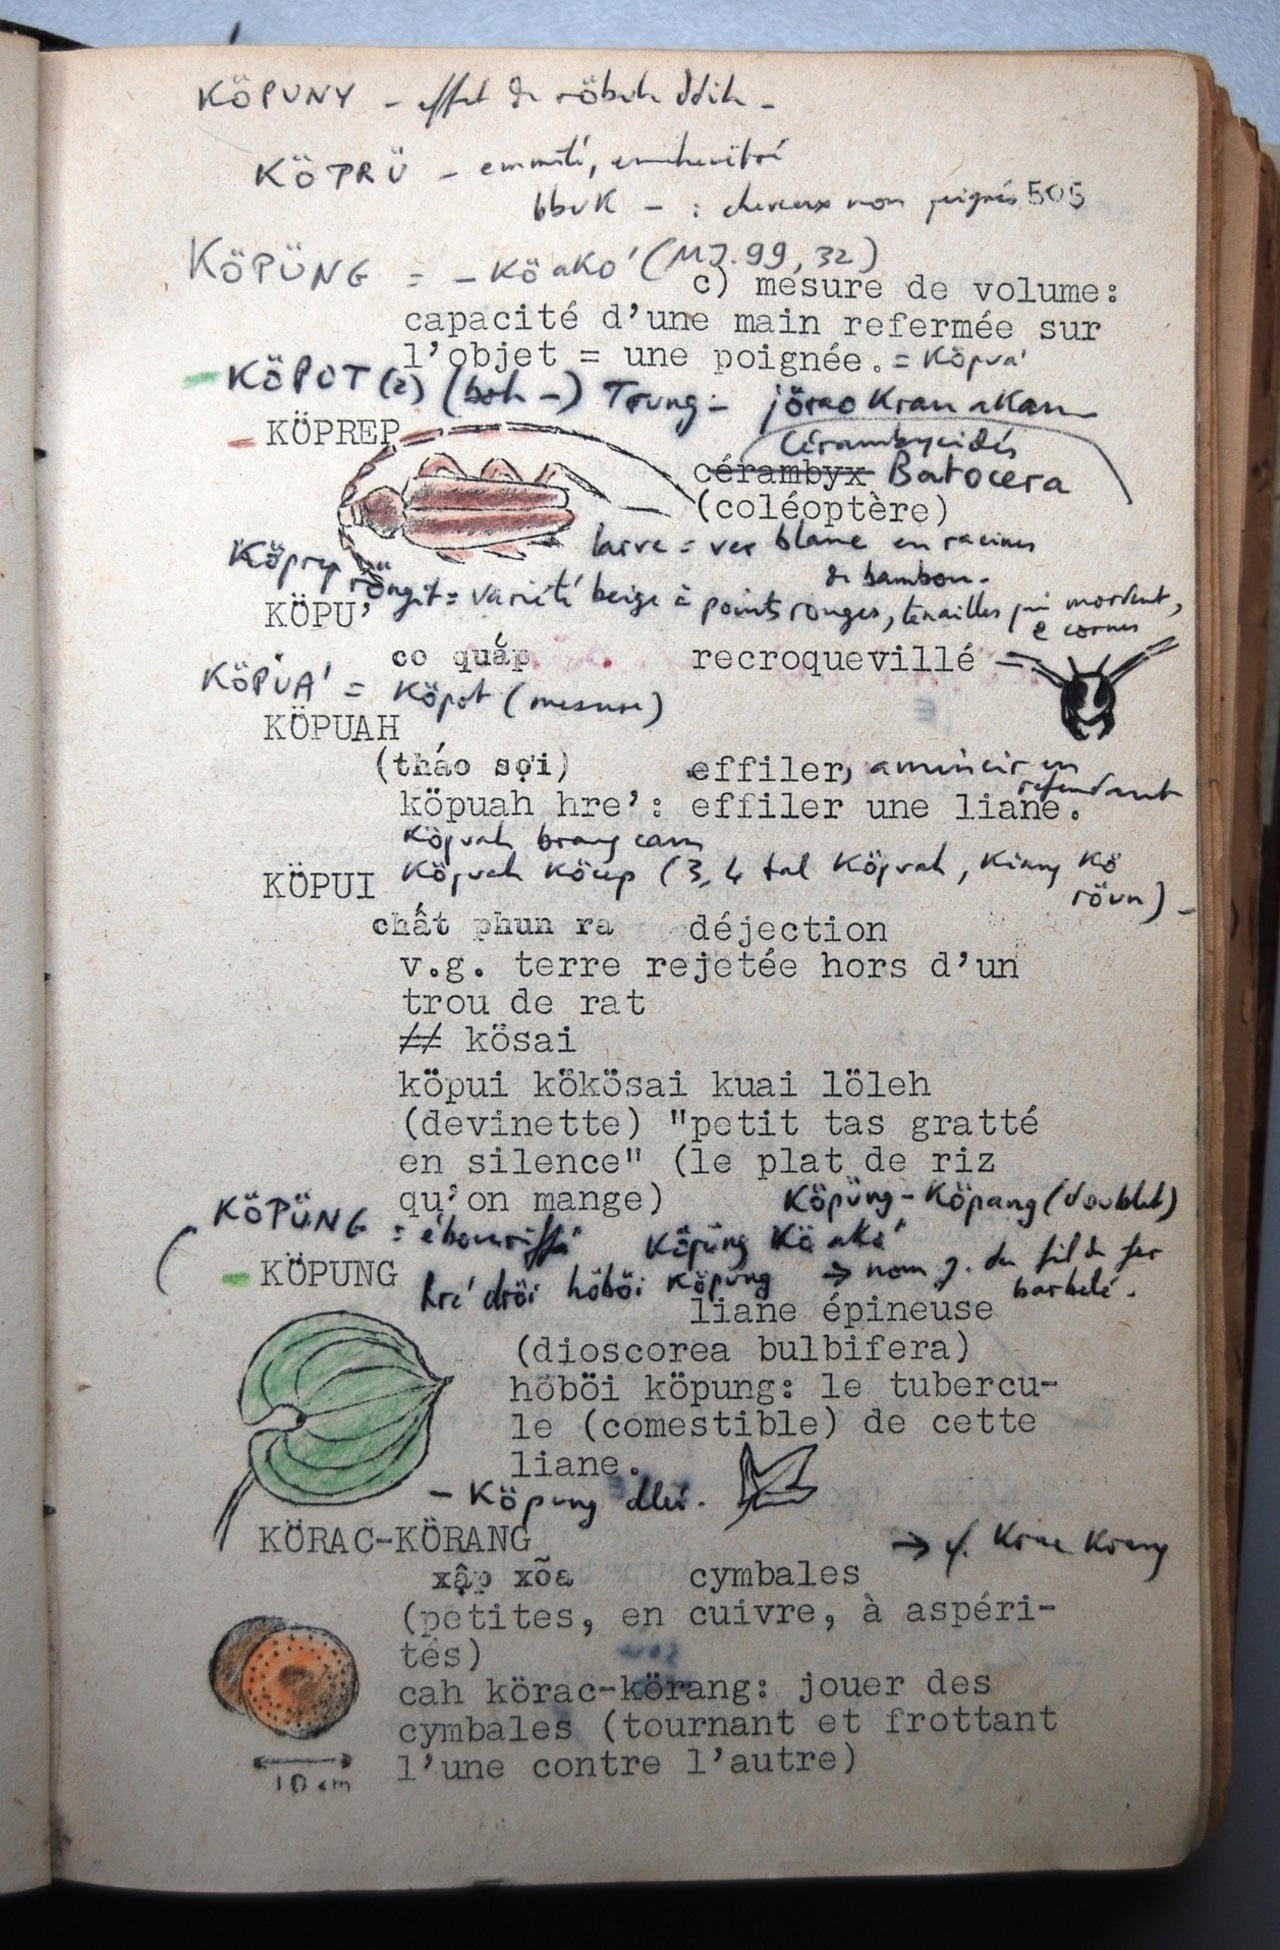 KÖPUNY -
KÖPRÜ -
bbuK - : cheveux non peignés 505
KÖPÜNG = - Kö aKo' (MJ. 99, 32)
c) mesure de volume:
capacité d'une main refermée sur
l'objet = une poignée. = Köpua'
KÖPOT (2) (boh -) Trung - jörao Kran aKan
KÖPREP
Cérambycidés
cérambyx Batocera
(coléoptère)
larve = ver blanc en racines
de bambou.
Köprep röngit = variété beige à points rouges, tenailles qui mordent,
2 cornes
KÖPU'
co quắp recroquevillé
KÖPUA' = Köpot (mesure)
KÖPUAH
(tháo sợi) effiler, amincir en
refendant
köpuah hre': effiler une liane.
Köpuah brang cam
Köpuah Köcep (3, 4 tal Köpuah, Kiang Kö
röun) -
KÖPUI
chất phun ra déjection
v.g. terre rejetée hors d'un
trou de rat
≠ kösai
köpui kökösai kuai löleh
(devinette) "petit tas gratté
en silence" (le plat de riz
qu'on mange)
Köpüng - Köpang (doublet)
KÖPÜNG = ébouriffé Köpüng Kö ako'
KÖPUNG
hre' dröi höböi Köpüng → nom g. du fil de fer
barbelé.
liane épineuse
(dioscorea bulbifera)
höböi köpung: le tubercu-
le (comestible) de cette
liane.
- Köpung
KÖRAC-KÖRANG
→ cf. Krac Krang
xập xõa cymbales
(petites, en cuivre, à aspéri-
tés)
cah körac-körang: jouer des
cymbales (tournant et frottant
l'une contre l'autre)
10 cm